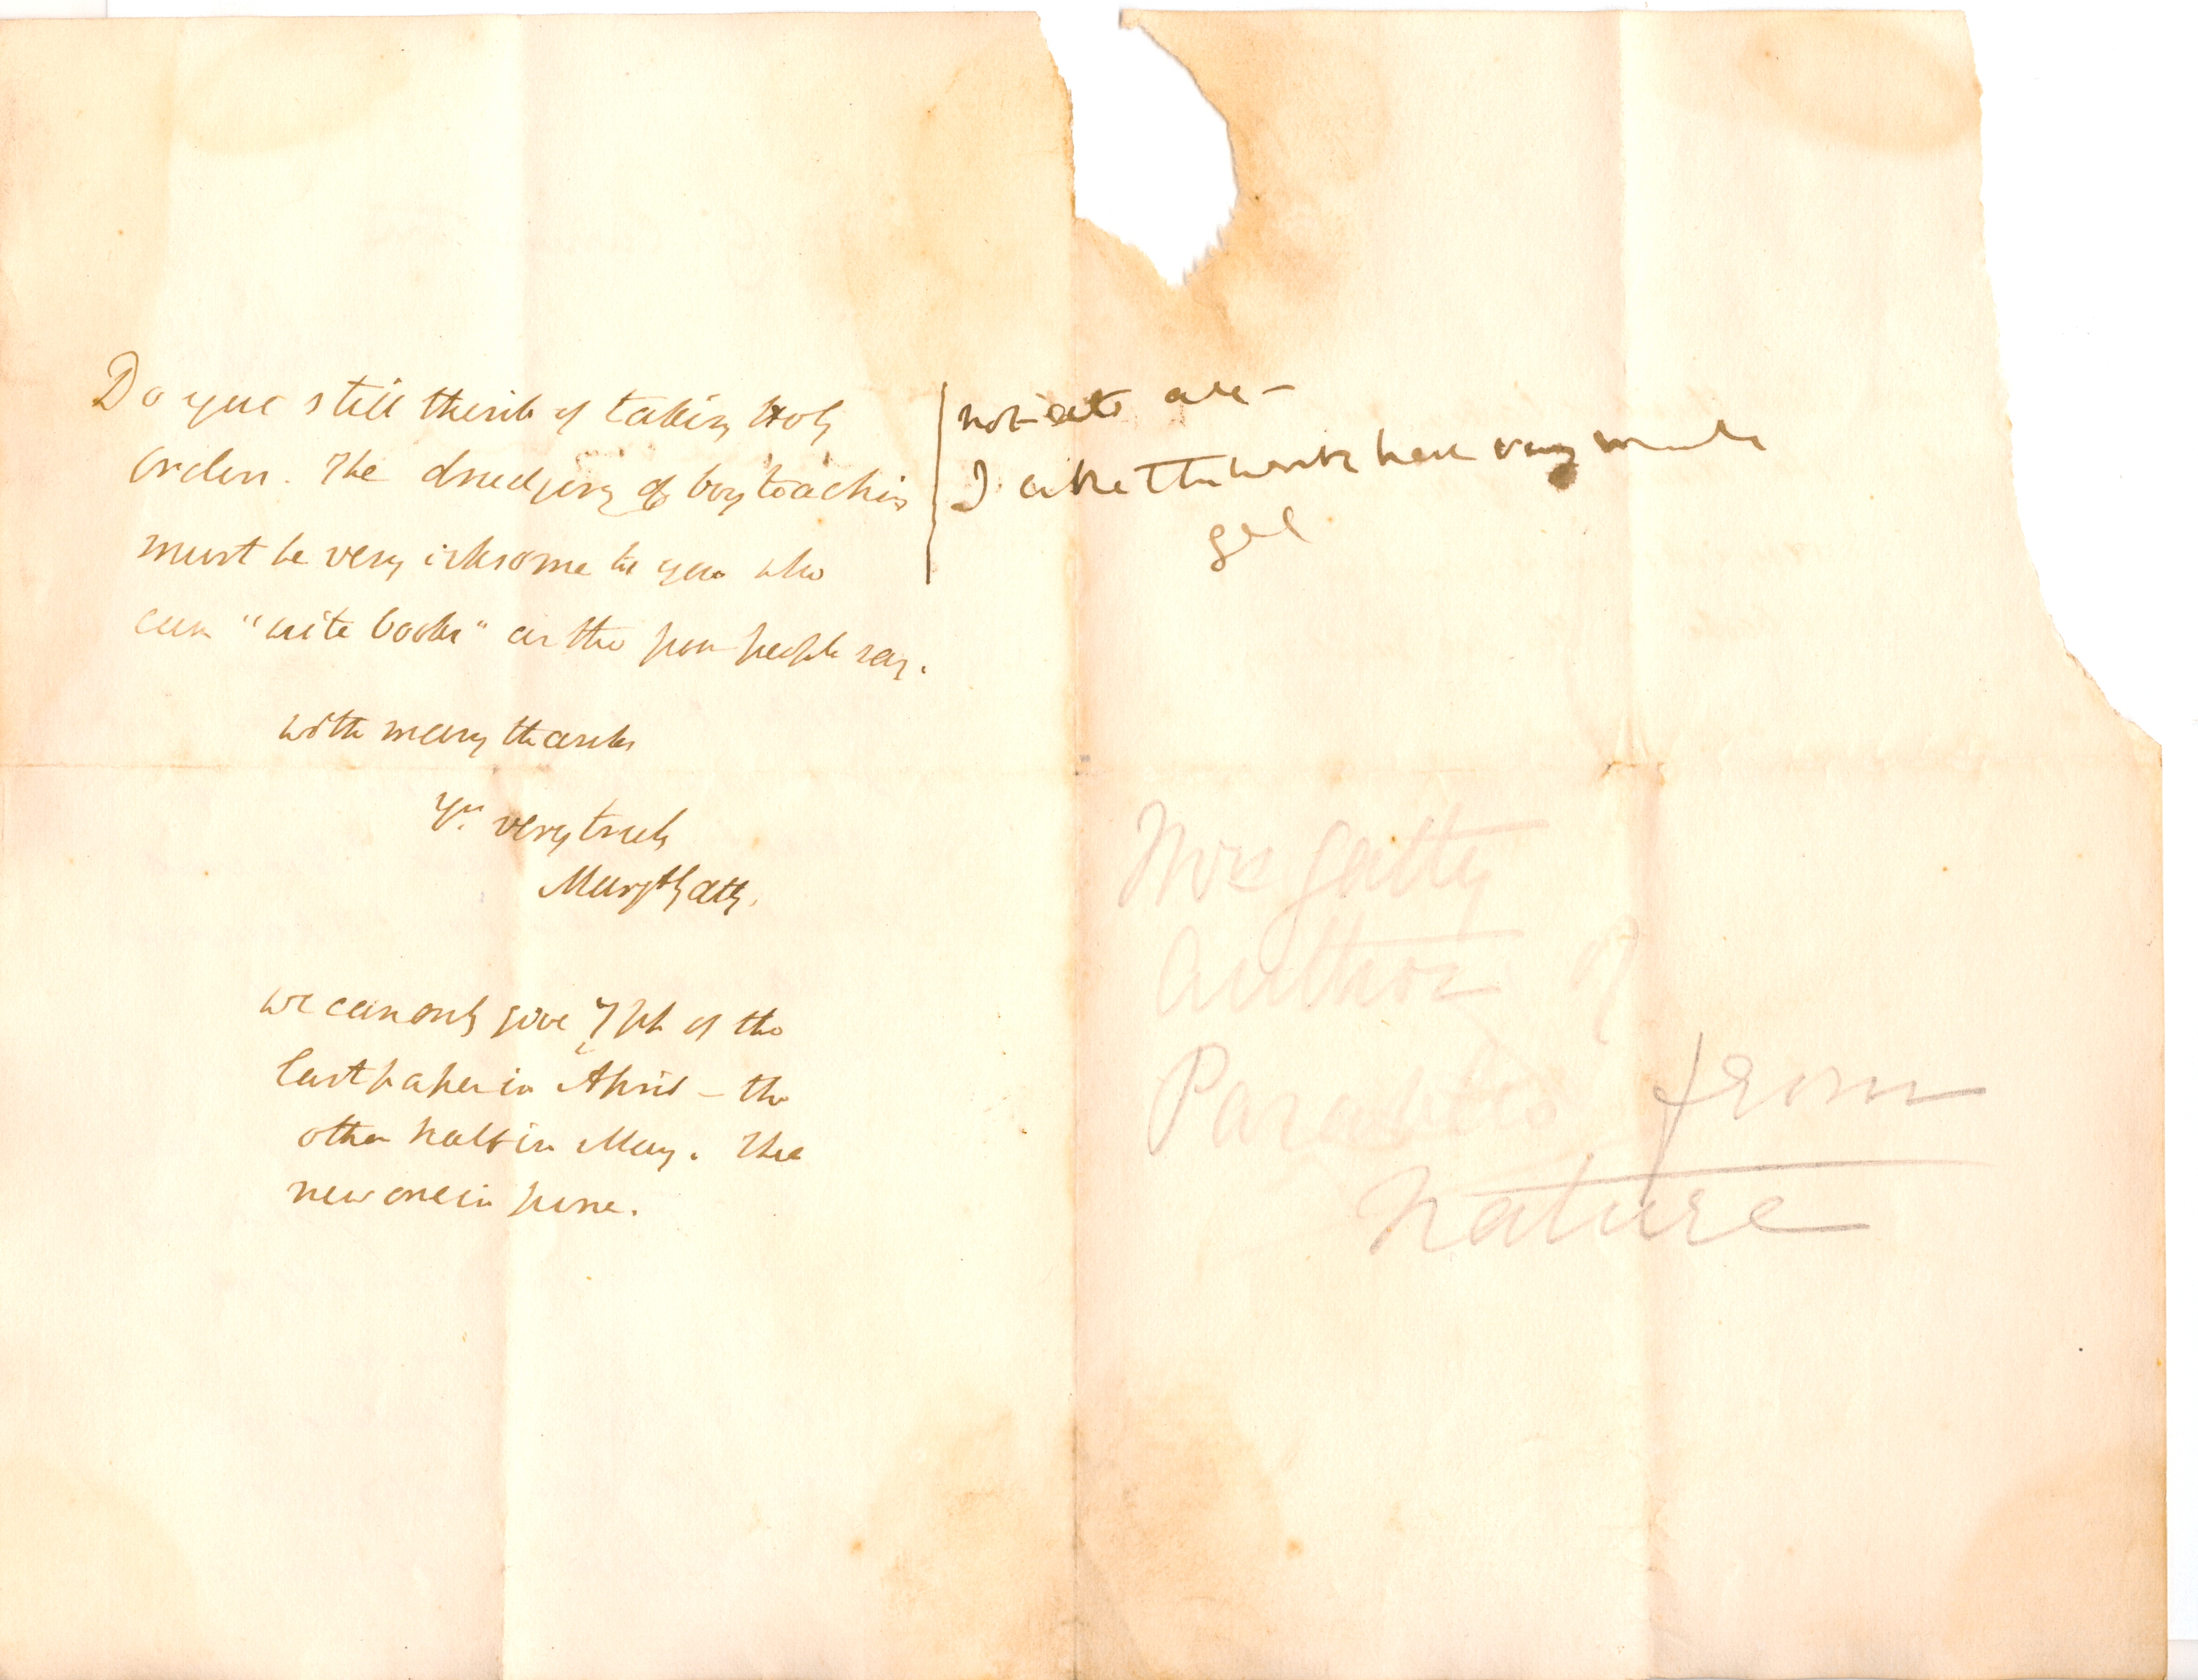 Do you still think of taking Holy
Orders. The drudgery of boy teaching
must be very irksome to you who
can "write books" as the poor people say.
with many thanks
Yrs very truly
Margt Gatty.
We can only give 7 ph of the
last paper in April – the
other half in May. The
new one in June.
not at all –
I like the work here very much
Mrs Gatty
Author of
Parables from
Nature